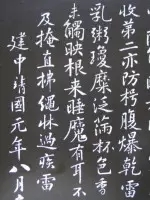 收第二亦防枵腹爆乾雷
乳粥瓊糜泛滿杯色香
味觸映根來睡魔有耳不
及掩直拂繩牀過疾雷
建中靖國元年八月